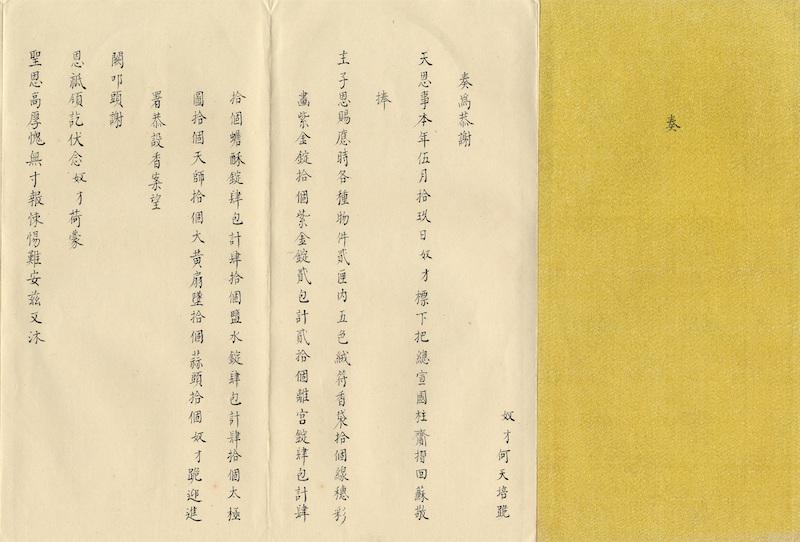 奏
奴才何天培跪
奏為恭謝
天恩事本年伍月拾玖日奴才標下把總宣國柱齎摺回蘇敬
捧
主子恩賜應時各種物件貳匣內五色絨符香袋拾個線穗彩
畫紫金錠拾個紫金錠貳包計貳拾個離宮錠肆包計肆
拾個蟾酥錠肆包計肆拾個鹽水錠肆包計肆拾個太極
圖拾個天師拾個大黃扇墜拾個蒜頭拾個奴才跪迎進
署恭設香案望
闕叩頭謝
恩祗領訖伏念奴才荷蒙
聖恩高厚愧無寸報悚惕難安茲又沐